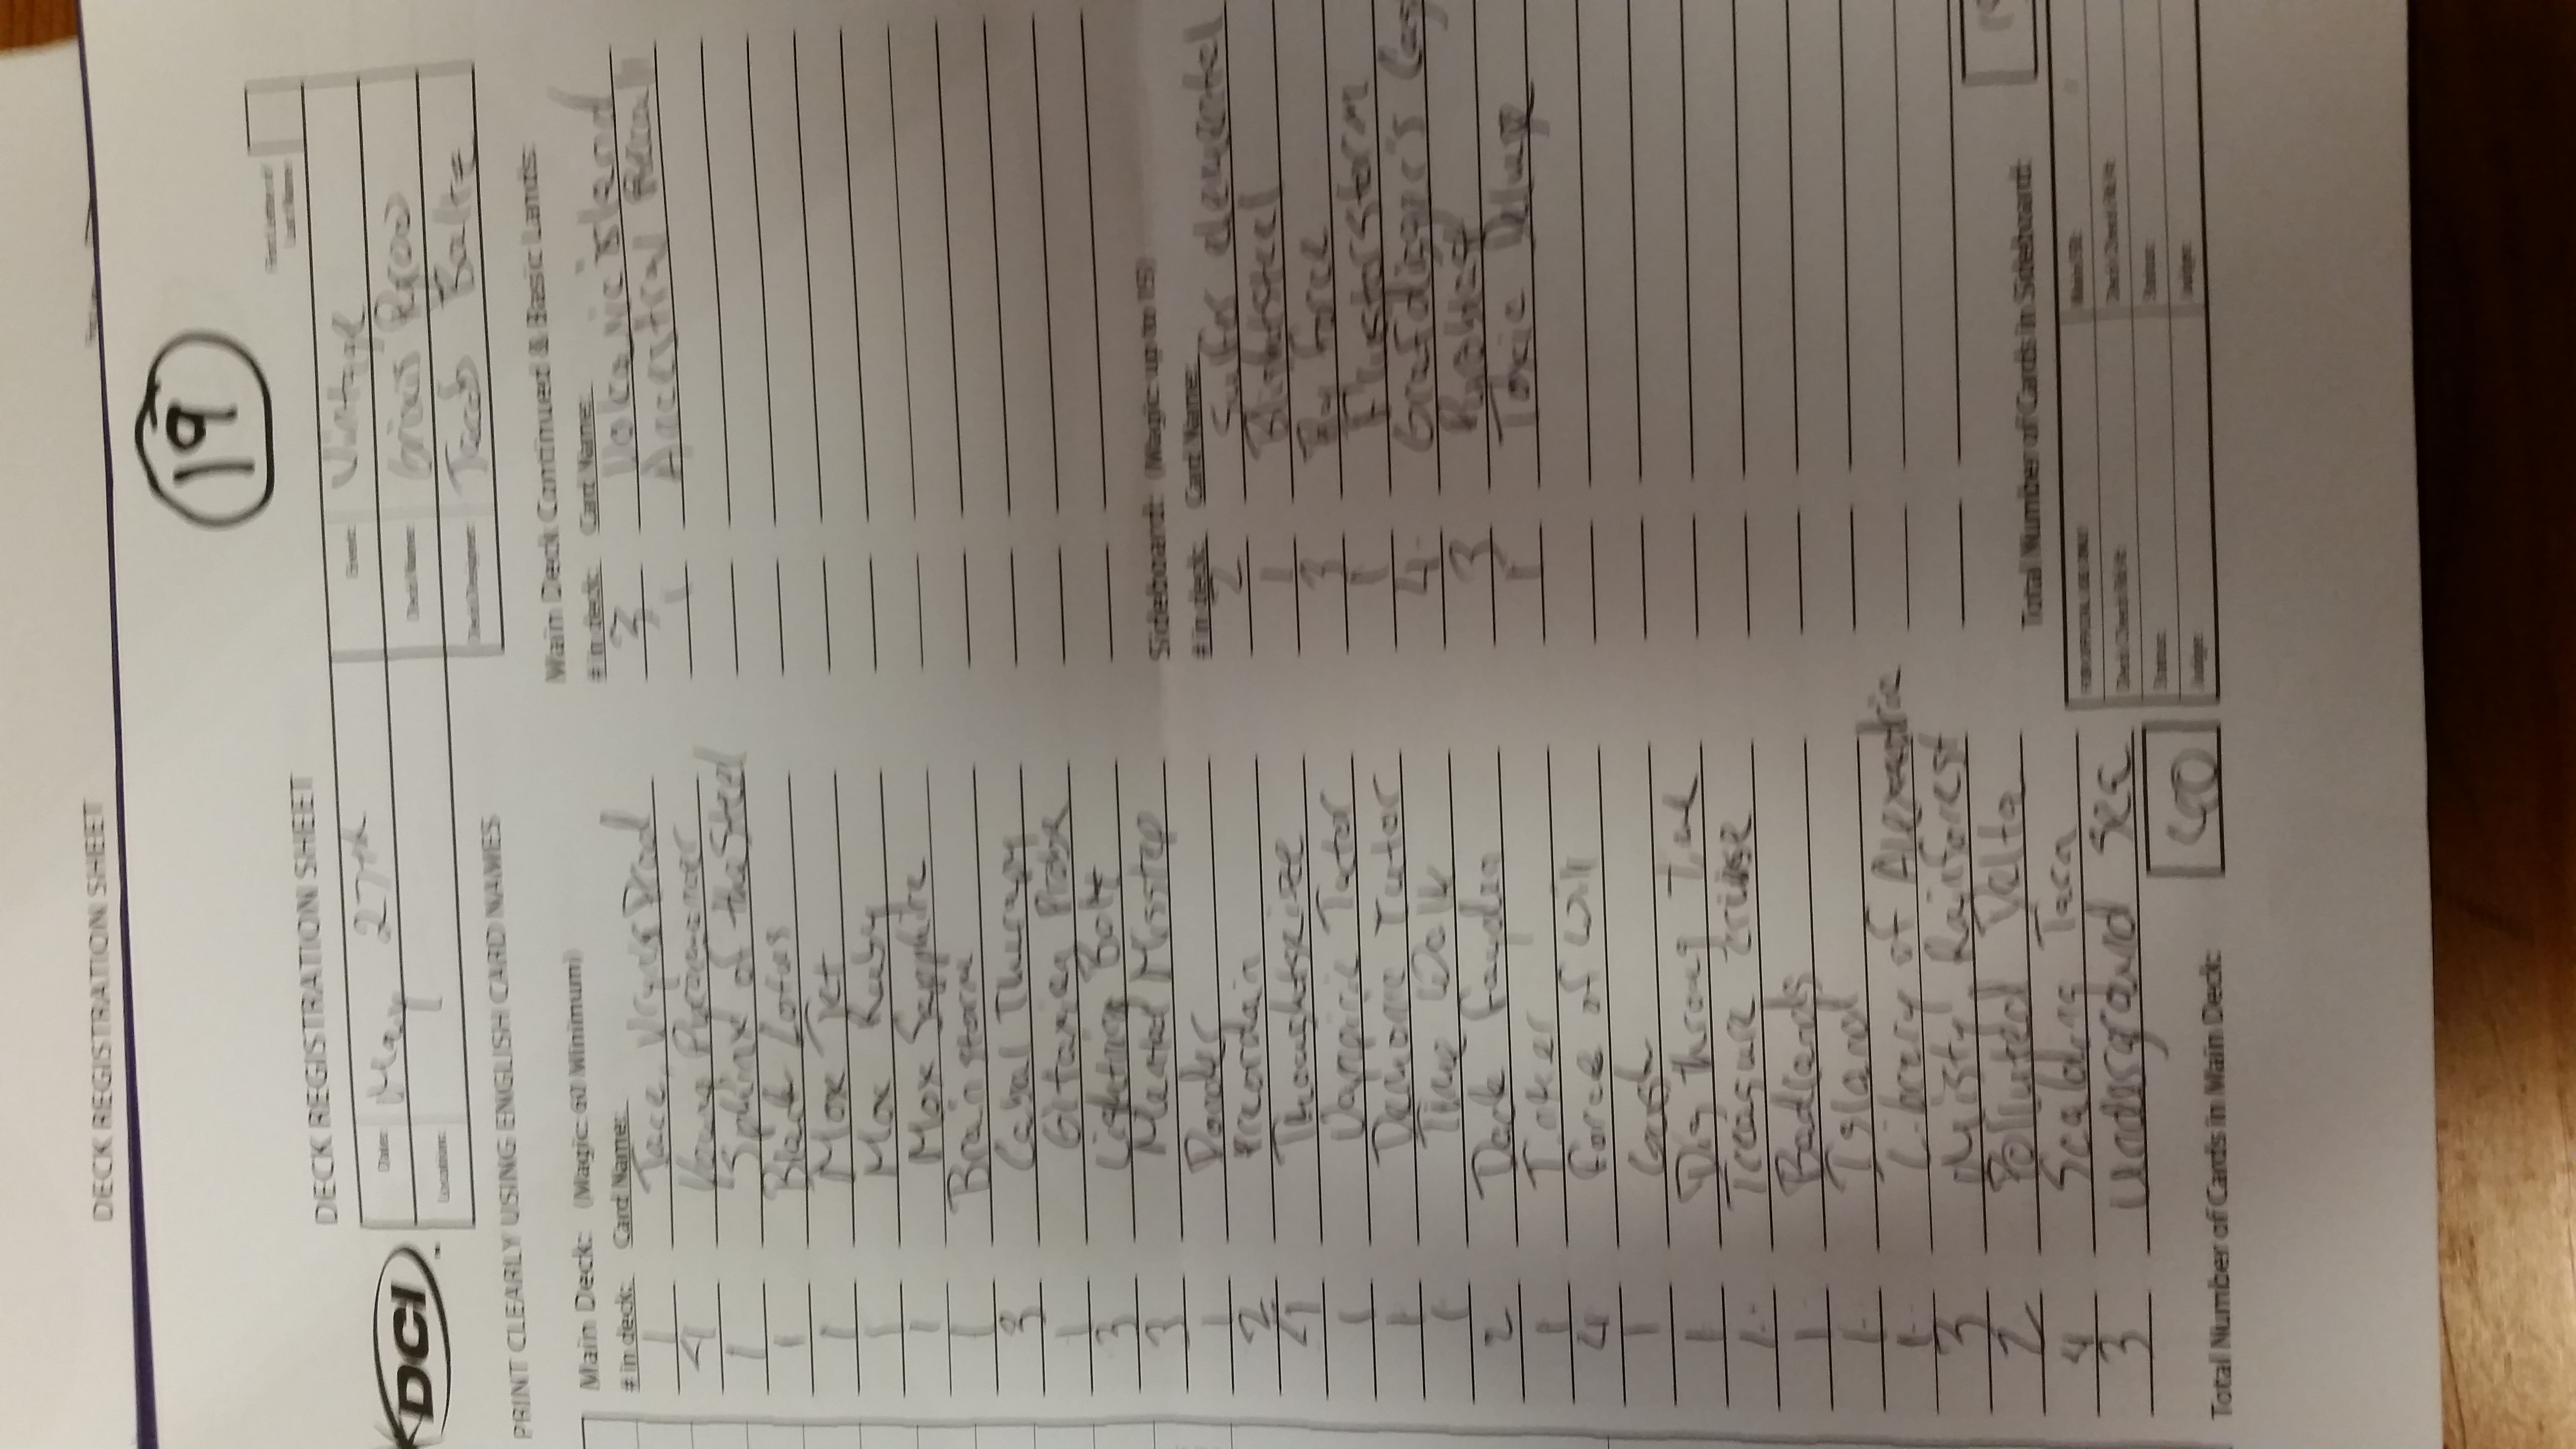 DECK REGISTRATION SHEET
19
First Letter of
Last Name:
DECK REGISTRATION SHEET
DCI
Date: May 27th
Location:
Event: Vintage
Deck Name: Grixis
Deck Designer: Jacob
PRINT CLEARLY USING ENGLISH CARD NAMES
Main Deck: (Magic: 60 Minimum)
# in deck: Card Name:
1 Jace, Vryn's Prod
4 Young Pyromancer
1 Sphinx of the Steel
1 Black Lotus
1 Mox Jet
1 Mox Ruby
1 Mox Sapphire
1 Brainstorm
3 Cabal Therapy
1 Gitaxian Probe
3 Lightning Bolt
3 Mental Misstep
1 Ponder
2 Preordain
4 Thoughtseize
1 Vampiric Tutor
1 Demonic Tutor
1 Time Walk
2 Dack Fayden
1 Tinker
4 Force of Will
1 Gush
1 Dig throug time
1 Treasure Cruise
1 Badlands
1 Island
1 Library of Alexandria
3 Misty Rainforest
2 Polluted Delta
4 Scalding Tarn
3 Underground Sea
Total Number of Cards in Main Deck: 60
Main Deck Continued & Basic Lands:
# in deck: Card Name:
3 Volcanic island
1 Ancestral Recall
Sideboard: (Magic up to 15)
# in deck: Card Name:
2 Sulfur elemental
1 Blightsteel
3 By force
1 Flusterstorm
4 Grafdigger's Cag
3 Pyroblast
1 Toxic Deluge
Total Number of Cards in Sideboard:
FOR OFFICIAL USE ONLY
Deck Check Rd #:
Deck Check Rd #:
Status:
Status:
Judge:
Judge: